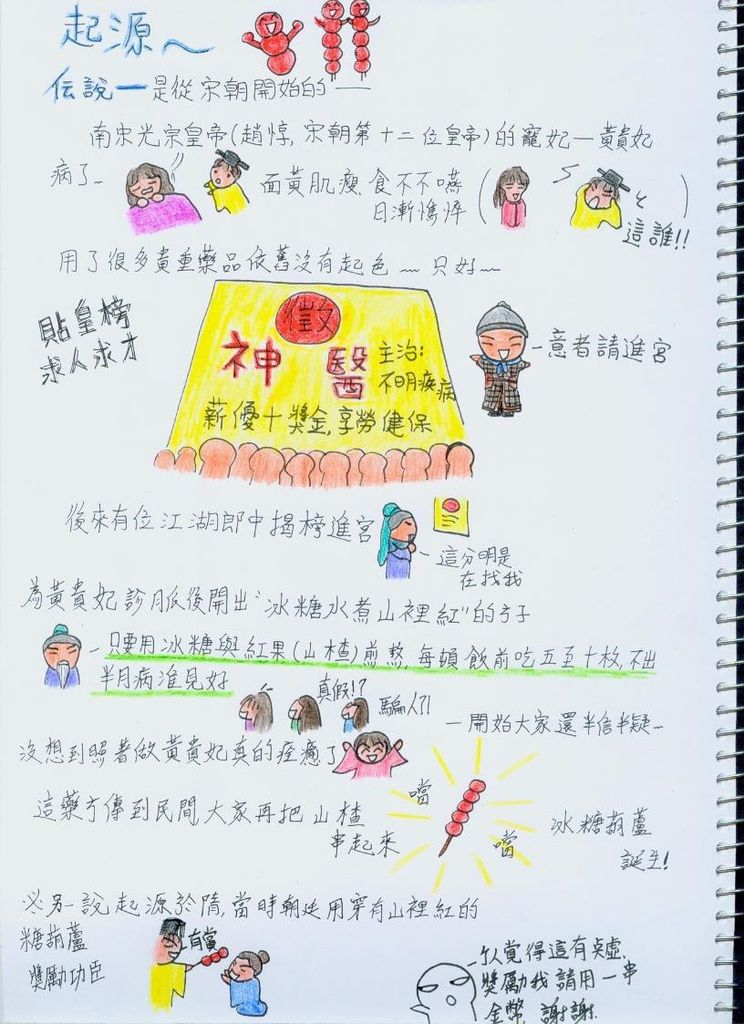 起源～
伝說一是從宋朝開始的—
南宋光宗皇帝(趙惇,宋朝第十二位皇帝)的寵妃—黃貴妃
病了~
面黃肌瘦 食不不嚥
日漸憔悴
這誰!!
用了很多貴重藥品依舊沒有起色~只好~
貼皇榜
求人求才
徵
神醫
主治:
不明疾病
薪優+獎金,享勞健保
-意者請進宮
後來有位江湖郎中揭榜進宮
-這分明是
在找我
為黃貴妃診脈後開出"冰糖水煮山裡紅"的方子
-只要用冰糖與紅果(山楂)煎熬,每頓飯前吃五至十枚,不出
半月病准見好
真假!?
騙人?!
一開始大家還半信半疑~
沒想到照著做黃貴妃真的痊癒了
這藥方傳到民間,大家再把山楂
串起來
噹
噹
冰糖葫蘆
誕生!
※另一說起源於隋,當時朝廷用穿有山裡紅的
糖葫蘆
獎勵功臣
有賞
-尒覺得這有點虛,
獎勵我請用一串
金幣 謝謝